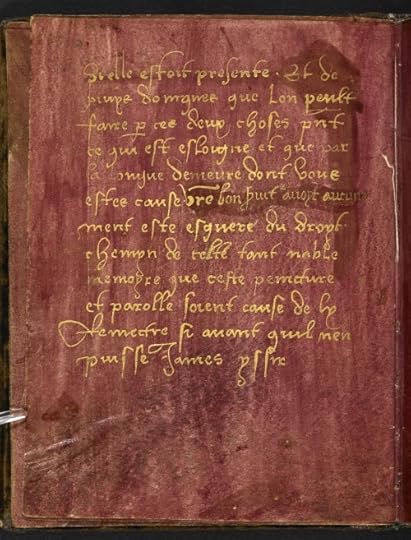 Si elle estoit presente . Et de
puys donques que lon peult
faire p ces deux choses pnt
ce qui est esloigne et que par
la longue demeure dont vous
estes cause vre bon huit avoit aucune
ment este esguere du droyt
chemyn de telle tant noble
memoyre que ceste peincture
et parolle soient cause de ly
Remectre si avant quil nen
puisse James yssir